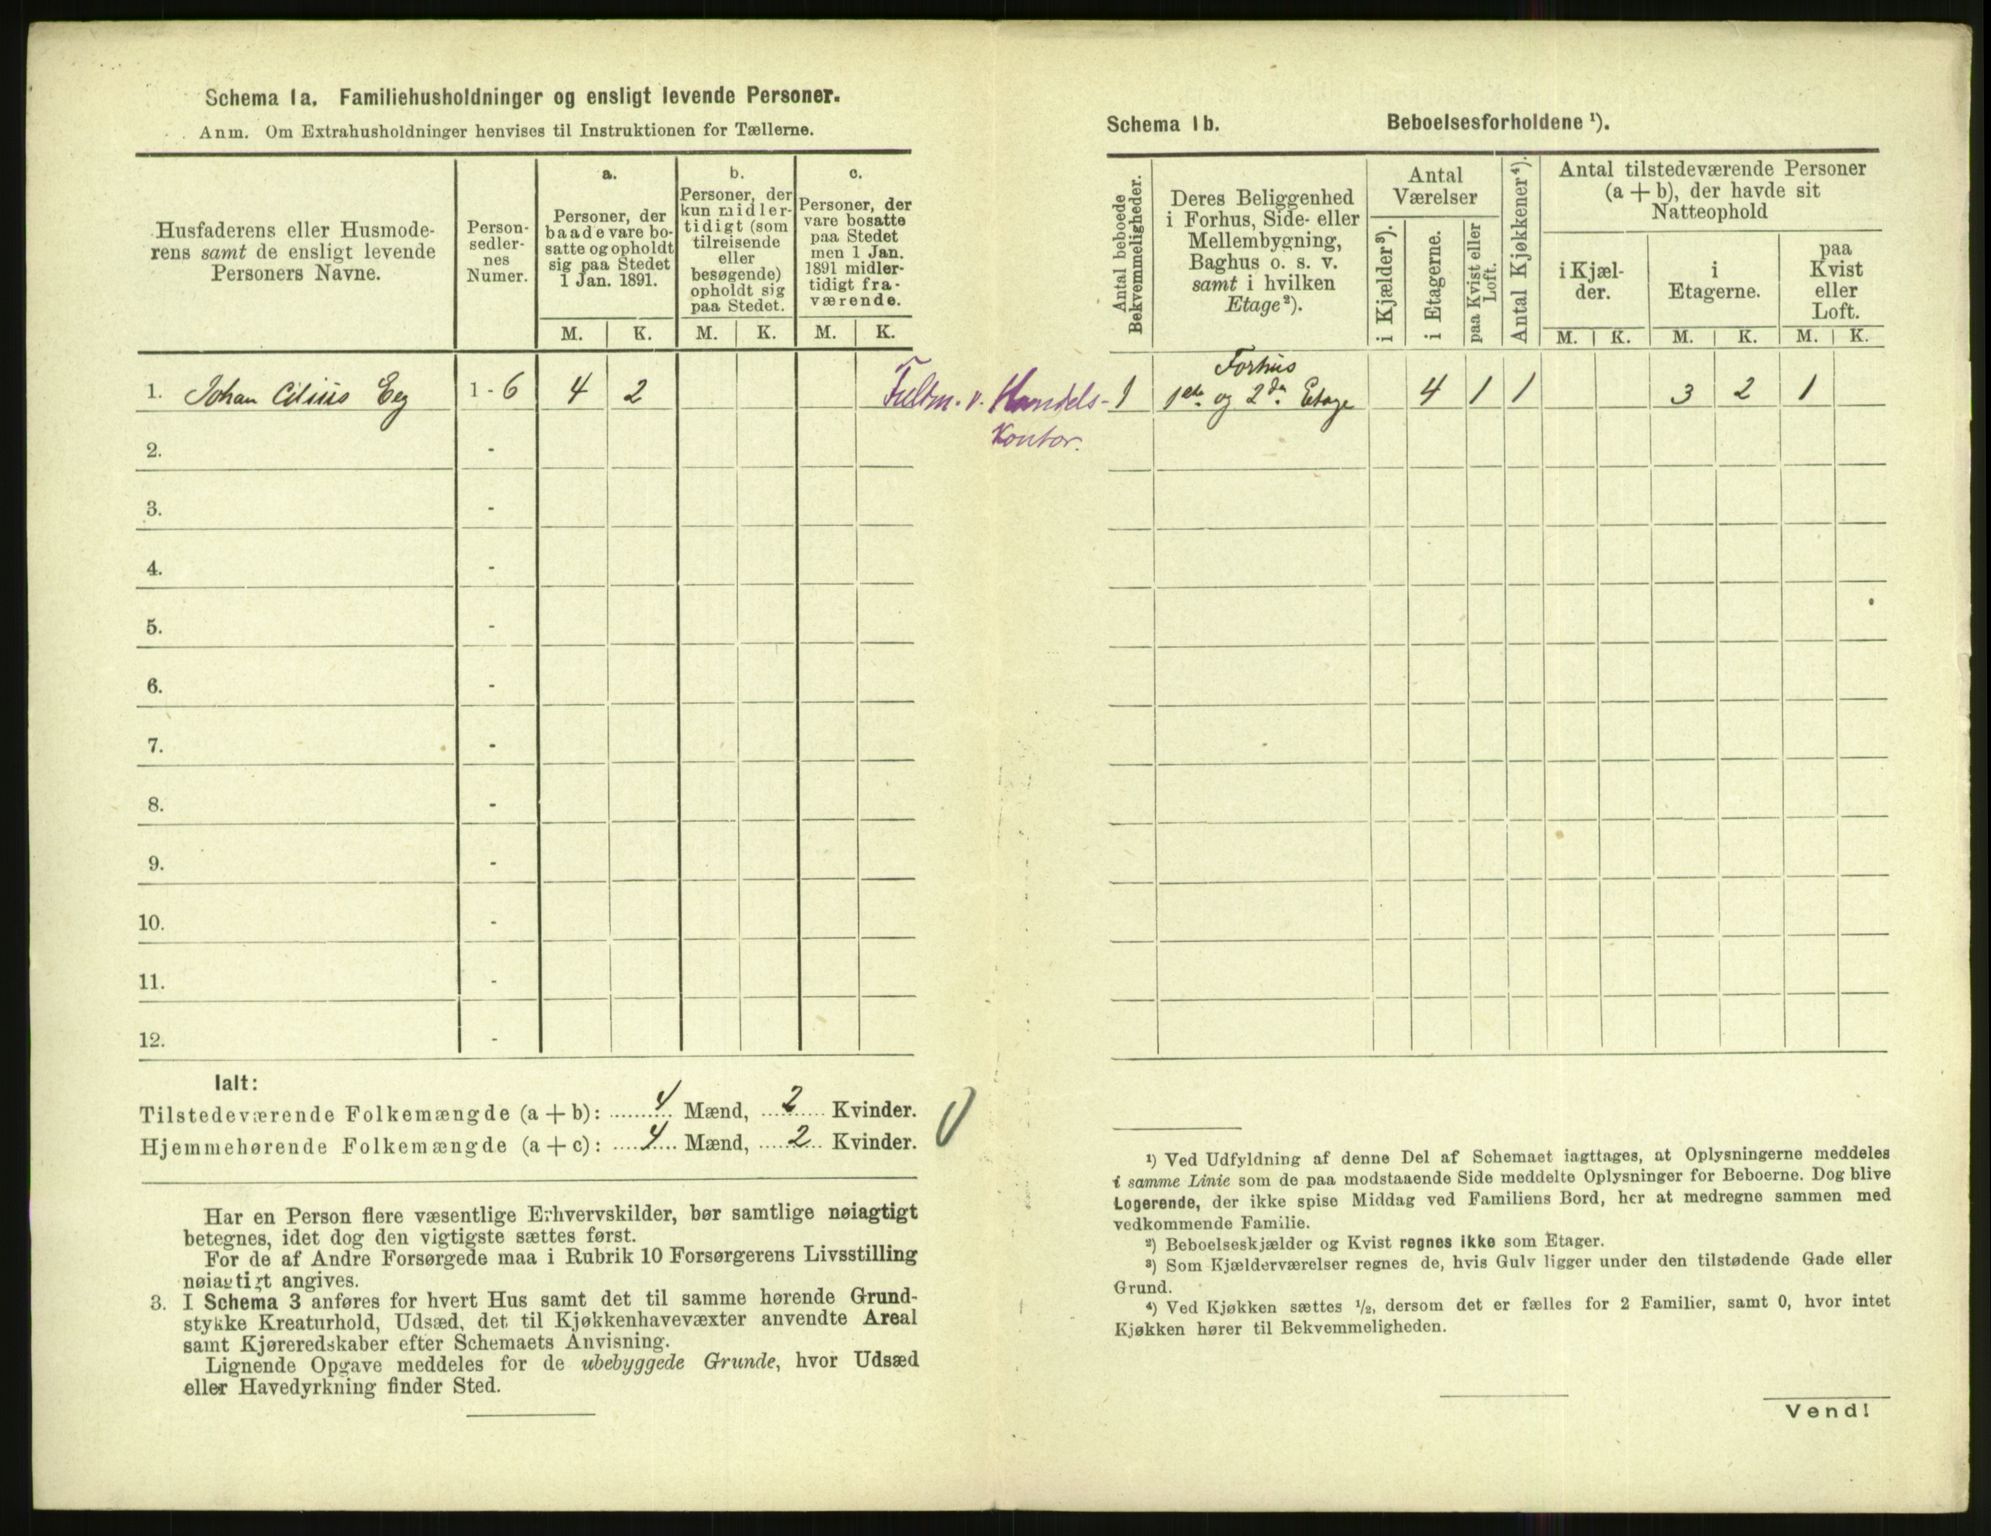 Schema 1a. Familiehusholdninger og ensligt levende Personer.
Anm. Om Extrahusholdninger henvises til Instruktionen for Tællerne.
Husfaderens eller Husmoderens samt de ensligt levende Personers Navne.
Personsedlernes Numer.
a.
Personer, der baade vare bosatte og opholdt sig paa Stedet 1 Jan. 1891.
b.
Personer, der kun midlertidigt (som tilreisende eller besøgende) opholdt sig paa Stedet.
c.
Personer, der vare bosatte paa Stedet men 1 Jan. 1891 midlertidigt fraværende.
M. K. M. K. M. K.
1. Johan Cilius Eeg 1-6 4 2
Fultm. v. Handels-
Kontor.
2. -
3. -
4. -
5. -
6. -
7. -
8. -
9. -
10. -
11. -
12. -
Ialt:
Tilstedeværende Folkemængde (a + b): 4 Mænd, 2 Kvinder.
Hjemmehørende Folkemængde (a + c): 4 Mænd, 2 Kvinder.
Har en Person flere væsentlige Erhvervskilder, bør samtlige nøiagtigt
betegnes, idet dog den vigtigste sættes først.
For de af Andre Forsørgede maa i Rubrik 10 Forsørgerens Livsstilling
nøiagtigt angives.
3. I Schema 3 anføres for hvert Hus samt det til samme hørende Grund-
stykke Kreaturhold, Udsæd, det til Kjøkkenhavevæxter anvendte Areal
samt Kjøreredskaber efter Schemaets Anvisning.
Lignende Opgave meddeles for de ubebyggede Grunde, hvor Udsæd
eller Havedyrkning finder Sted.
Schema 1b. Beboelsesforholdene ¹).
Antal beboede Bekvemmeligheder.
Deres Beliggenhed i Forhus, Side- eller Mellembygning, Baghus o. s. v. samt i hvilken Etage²).
Antal Værelser
i Kjælder³).
i Etagerne.
paa Kvist eller Loft.
Antal Kjøkkener⁴).
Antal tilstedeværende Personer (a + b), der havde sit Natteophold
i Kjælder.
i Etagerne.
paa Kvist eller Loft.
M. K. M. K. M. K.
Forhus
1 1ste og 2den Etage 4 1 1 3 2 1
¹) Ved Udfyldning af denne Del af Schemaet iagttages, at Oplysningerne meddeles
i samme Linie som de paa modstaaende Side meddelte Oplysninger for Beboerne. Dog blive
Logerende, der ikke spise Middag ved Familiens Bord, her at medregne sammen med
vedkommende Familie.
²) Beboelseskjælder og Kvist regnes ikke som Etager.
³) Som Kjælderværelser regnes de, hvis Gulv ligger under den tilstødende Gade eller
Grund.
⁴) Ved Kjøkken sættes ½, dersom det er fælles for 2 Familier, samt 0, hvor intet
Kjøkken hører til Bekvemmeligheden.
Vend!